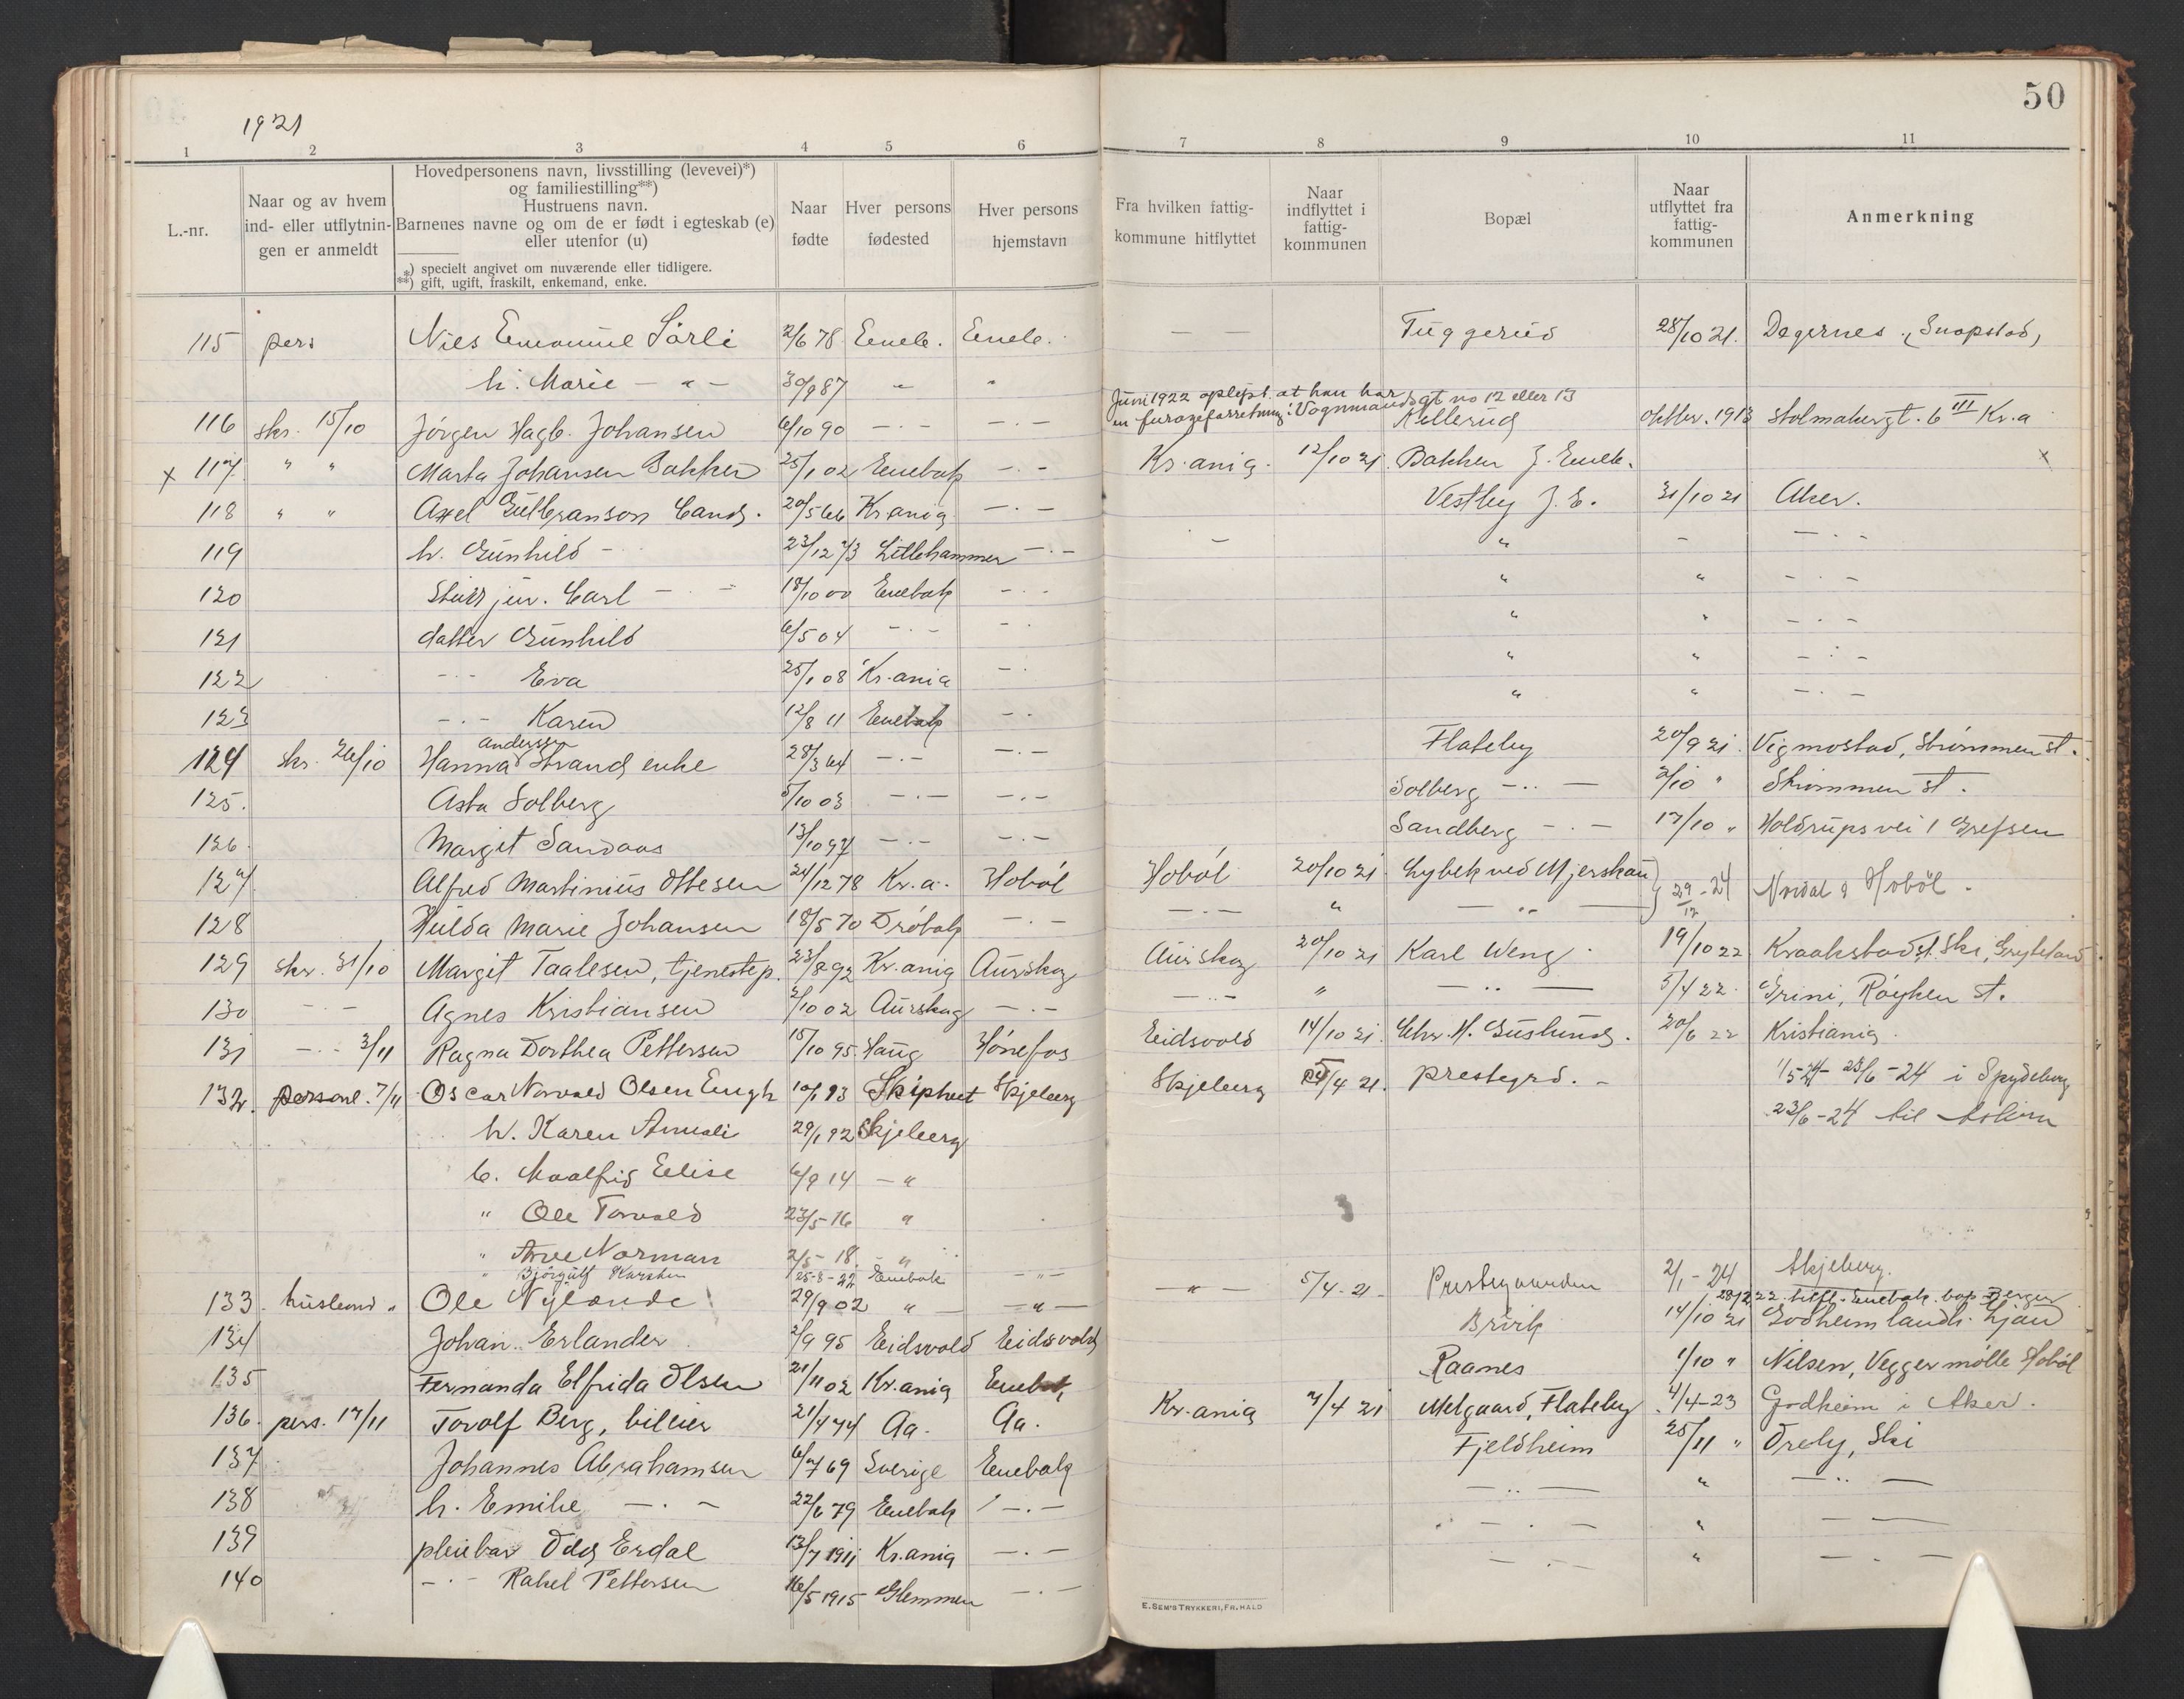 50
1921
1 2 3 4 5 6 7 8 9 10 11
L.-nr.
Naar og av hvem
ind- eller utflytnin-
gen er anmeldt
Hovedpersonens navn, livsstilling (levevei)*)
og familiestilling**)
Hustruens navn.
Barnenes navne og om de er født i egteskab (e)
eller utenfor (u)
*) specielt angivet om nuværende eller tidligere.
**) gift, ugift, fraskilt, enkemand, enke.
Naar
fødte
Hver persons
fødested
Hver persons
hjemstavn
Fra hvilken fattig-
kommune hitflyttet
Naar
indflyttet i
fattig-
kommunen
Bopæl
Naar
utflyttet fra
fattig-
kommunen
Anmerkning
115 pers Nils Emanuel Sørli 2/6 78 Eneb. Eneb. — — Tuggerud 28/10 21. Degernes. (Snopstad)
h. Marie — " — 30/9 87 " "
Juni 1922 oplyst at han har
en furageforretning: Vognmandsgt no 12 eller 13
116 skr. 15/10 Jörgen Hagb. Johansen 6/10 90 — . — — . — Kellerud oktbr. 1913 Stolmakergt. 6 III Kr.a
x 117 " " Marta Johansen Bakken 25/1 02 Enebak — . — Kr.ania. 12/10 21 Bakken J. Eneb. x
118 " " Axel Gulbranson Cand. 20/5 66 Kr.ania — . — Vestby J. E. 31/10 21 Aker.
119 h. Gunhild — 23/12 73 Lillehammer — . — - " — — . —
120 Stud jur. Carl — . — 18/10 00 Enebak — . — " " — . —
121 datter Gunhild 6/5 04 — . — — . " " — . —
122 — . — Eva 25/1 08 Kr.ania — . " " — . —
123 — . — Karen 12/8 11 Enebak — . " " — . —
andersen
124 skr. 26/10 Hanna Strand enke 28/3 64 — . — — . — Flateby 20/9 21. Vigmostad, Strömmen st.
125. Asta Solberg 5/10 03 — . — — . — Solberg — .. — 2/10 " Strömmen st.
126. Margit Sandaas 13/10 97 — . — — . — Sandberg — . — 17/10 " Holdrups vei 1 Grefsen
127 Alfred Martinius Ottesen 24/12 78 Kr.a. Hoböl Hoböl 20/10 21. Lybek ved Mjerskau } 29/12-24 Nordal i Hoböl.
128 Hulda Marie Johansen 18/5 70 Dröbak — . — — . — " — .. —
129 skr. 31/10 Margit Taalesen, tjenestep. 23/8 92 Kr.ania Aurskog Aurskog 20/10 21 Karl Weng. 19/10 22 Kraakstad st. Ski,
130 — — Agnes Kristiansen 2/10 02 Aurskog — . — — .. — " — .. — 5/4 22. Grini, Röyken st.
131 — . — 3/11 Ragna Dorthea Pettersen 15/10 95. Haug Hönefos Eidsvold 14/10 21. Chr. H. Guslund. 20/6 22 Kristiania.
132. personl. 7/11 Oscar Norvald Olsen Eugh 10/1 93 Skiptvet Skjeberg Skjeberg /4 21. prestegrd. - 1/5 24 - 23/6 - 24 i Spydeberg
h. Karen Amali 29/1 92 Skjeberg 23/6 - 24 til Askim
b. Maalfrid Elise 6/9 14 — "
" Ole Torvald 23/5-16 "
" Arve Norman 2/5 - 18. - "
" Björgulf Karsten 25-8-22 Enebak — " —
133. husbond " Ole Nylande 29/9 02 " — — " — — " — 5/4-21- Prestegaarden 2/1-24 Skjeberg.
28/2 22. tilfl. Enebak. bop. Berger
134 Johan Erlander 2/9 95 Eidsvold Eidsvold Brevik 14/10 21 Godheim landh. Ljan
135 Fernanda Elfrida Olsen 21/11 02 Kr.ania Enebak Raanes 1/10 " Nilsen, Vegger mölle Hoböl
136. pers. 17/11 Torolf Berg, billier 21/4 74 Aa. Aa. Kr.ania 7/4 21 Melgaard, Flateby 4/4-23 Godheim i Aker.
137 Johannes Abrahamsen 6/7 69 Sverige Enebak Fjeldheim 25/11 " Oreby, Ski
138 h. Emilie — . — 22/6 79 Enebak — . — — .. — " — .. —
139 pleiebar Odd Erdal 13/7 1911 Kr.ania — . — — . — " — —
140 — . — Rakel Pettersen 16/5 1915 Glemmen — . — — . — " — . —
E. SEM'S TRYKKERI, FR.HALD